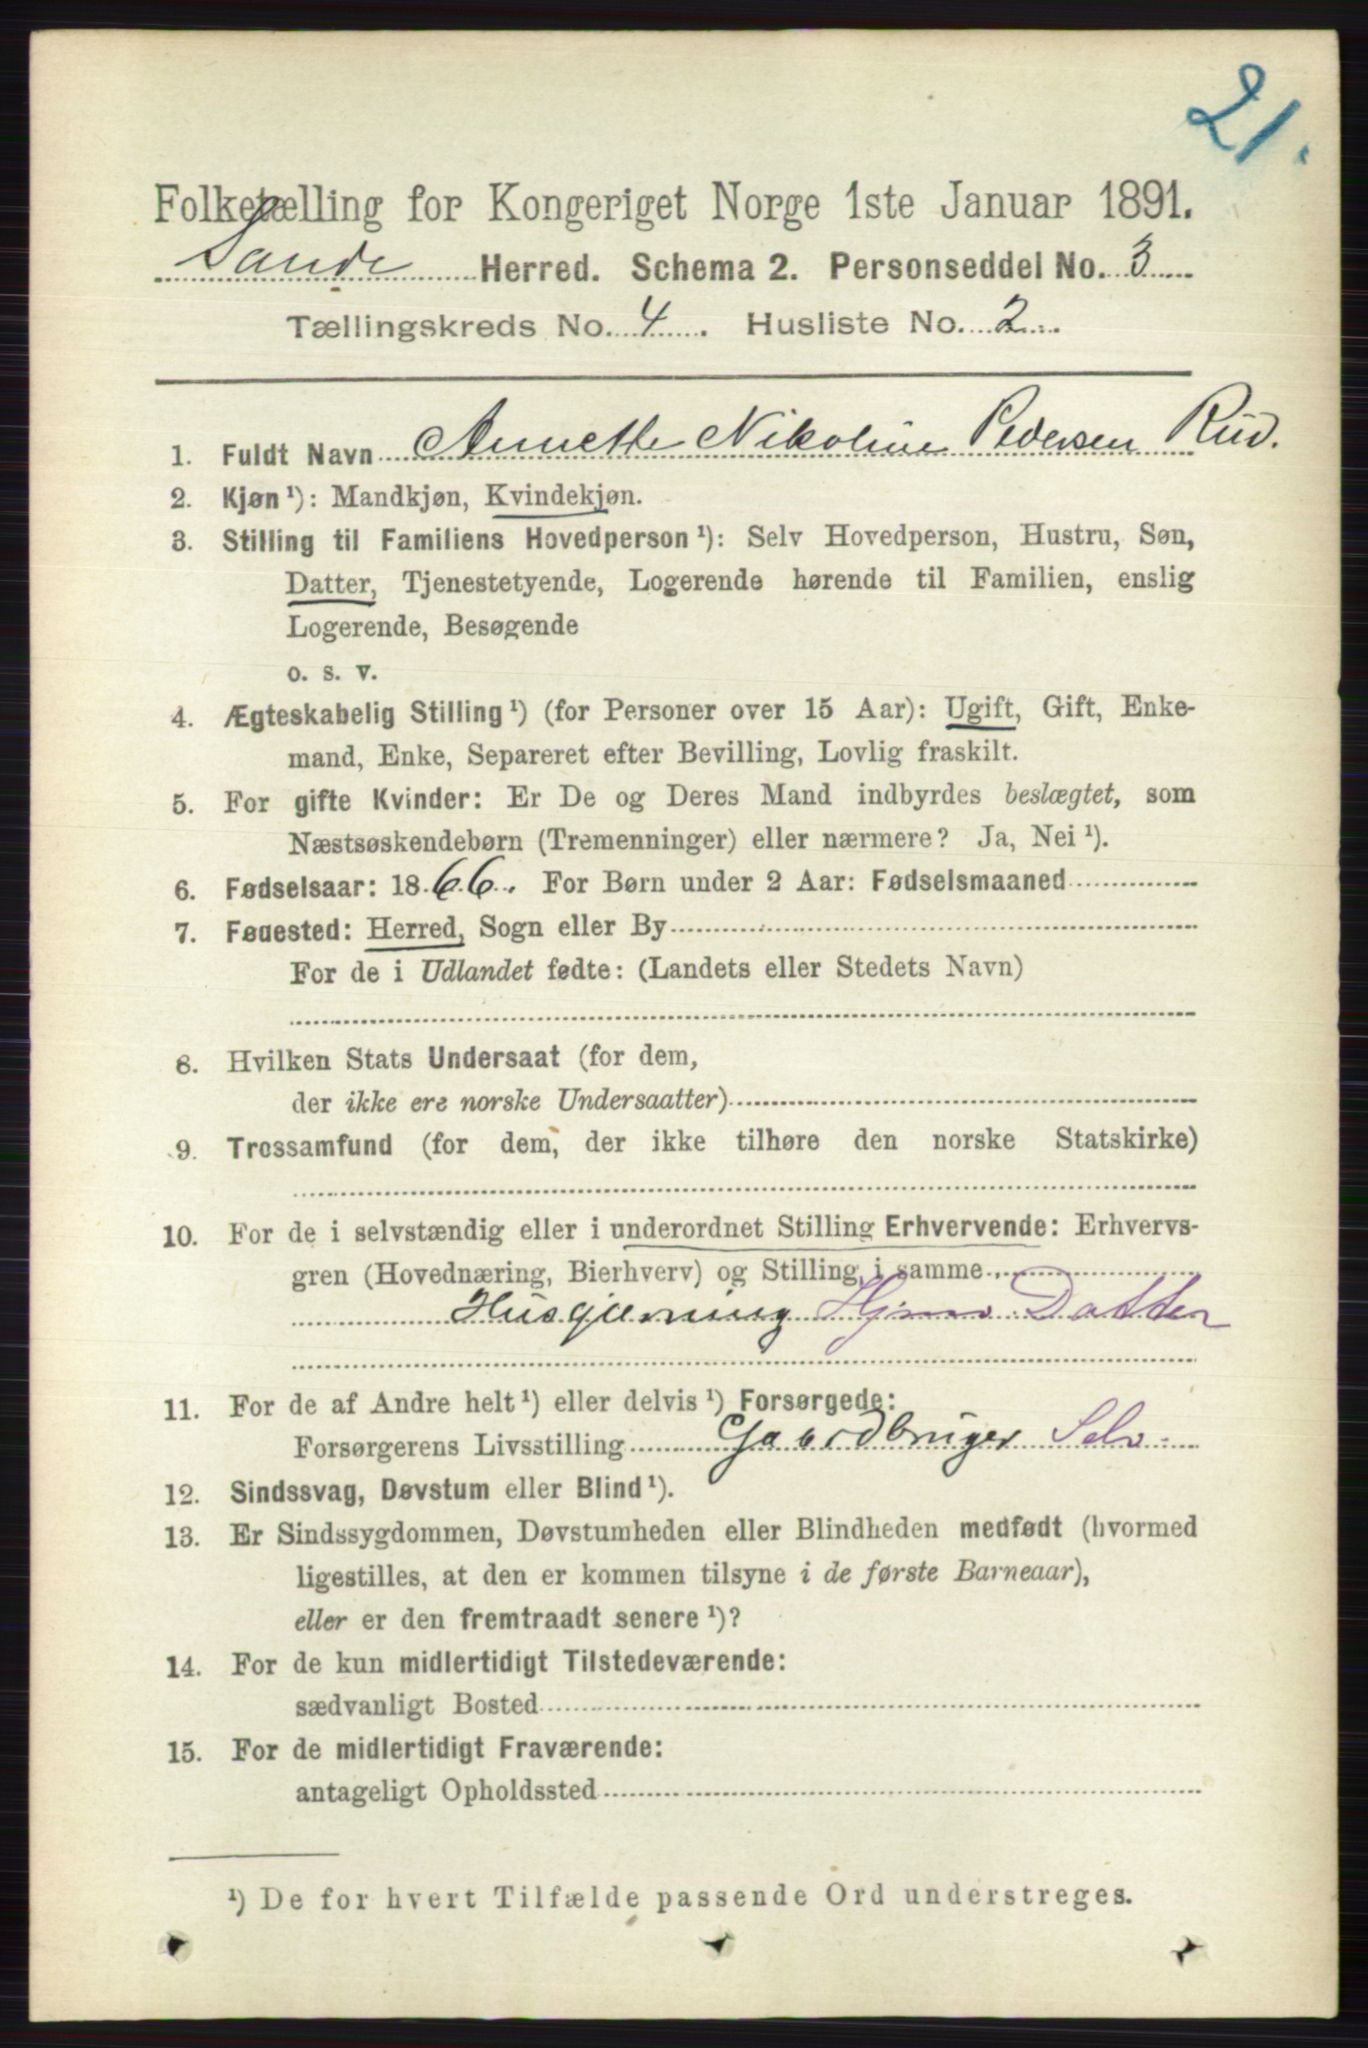 21.
Folketælling for Kongeriget Norge 1ste Januar 1891.
Sande Herred. Schema 2. Personseddel No. 3
Tællingskreds No. 4. Husliste No. 2
1. Fuldt Navn Annette Nikoline Pedersen Rud.
2. Kjøn ¹): Mandkjøn, Kvindekjøn.
3. Stilling til Familiens Hovedperson ¹): Selv Hovedperson, Hustru, Søn,
Datter, Tjenestetyende, Logerende hørende til Familien, enslig
Logerende, Besøgende
o. s. v.
4. Ægteskabelig Stilling ¹) (for Personer over 15 Aar): Ugift, Gift, Enke-
mand, Enke, Separeret efter Bevilling, Lovlig fraskilt.
5. For gifte Kvinder: Er De og Deres Mand indbyrdes beslægtet, som
Næstsøskendebørn (Tremenninger) eller nærmere? Ja, Nei ¹).
6. Fødselsaar: 1866. For Børn under 2 Aar: Fødselsmaaned
7. Fødested: Herred, Sogn eller By
For de i Udlandet fødte: (Landets eller Stedets Navn)
8. Hvilken Stats Undersaat (for dem,
der ikke ere norske Undersaatter)
9. Trossamfund (for dem, der ikke tilhøre den norske Statskirke)
10. For de i selvstændig eller i underordnet Stilling Erhvervende: Erhvervs-
gren (Hovednæring, Bierhverv) og Stilling i samme
Husgjerning Datter
11. For de af Andre helt ¹) eller delvis ¹) Forsørgede:
Forsørgerens Livsstilling Gaardbruger Selv.
12. Sindssvag, Døvstum eller Blind ¹).
13. Er Sindssygdommen, Døvstumheden eller Blindheden medfødt (hvormed
ligestilles, at den er kommen tilsyne i de første Barneaar),
eller er den fremtraadt senere ¹)?
14. For de kun midlertidigt Tilstedeværende:
sædvanligt Bosted
15. For de midlertidigt Fraværende:
antageligt Opholdssted
¹) De for hvert Tilfælde passende Ord understreges.